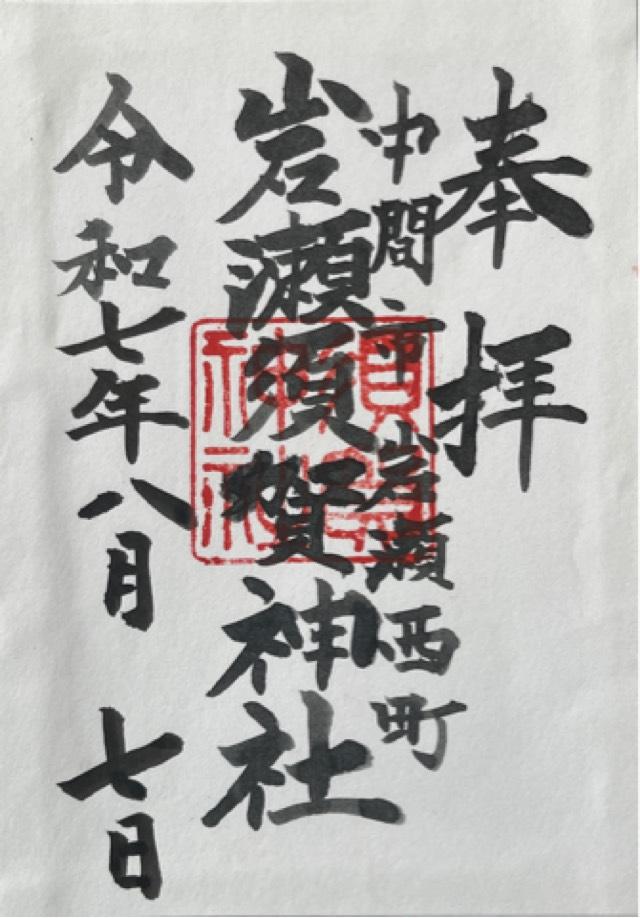 奉拝
中間市岩瀬西町
岩瀬須賀神社
令和七年八月七日